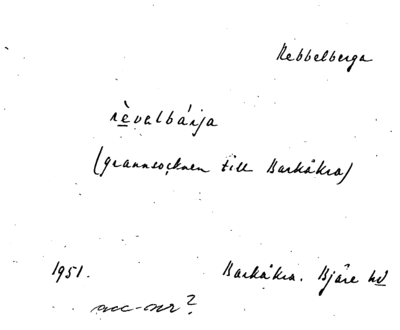 Rebbelberga
rèvalbárja
(grannsocknen till Barkåkra)
1951.
Barkåkra. Bjäre hd
acc-nr?